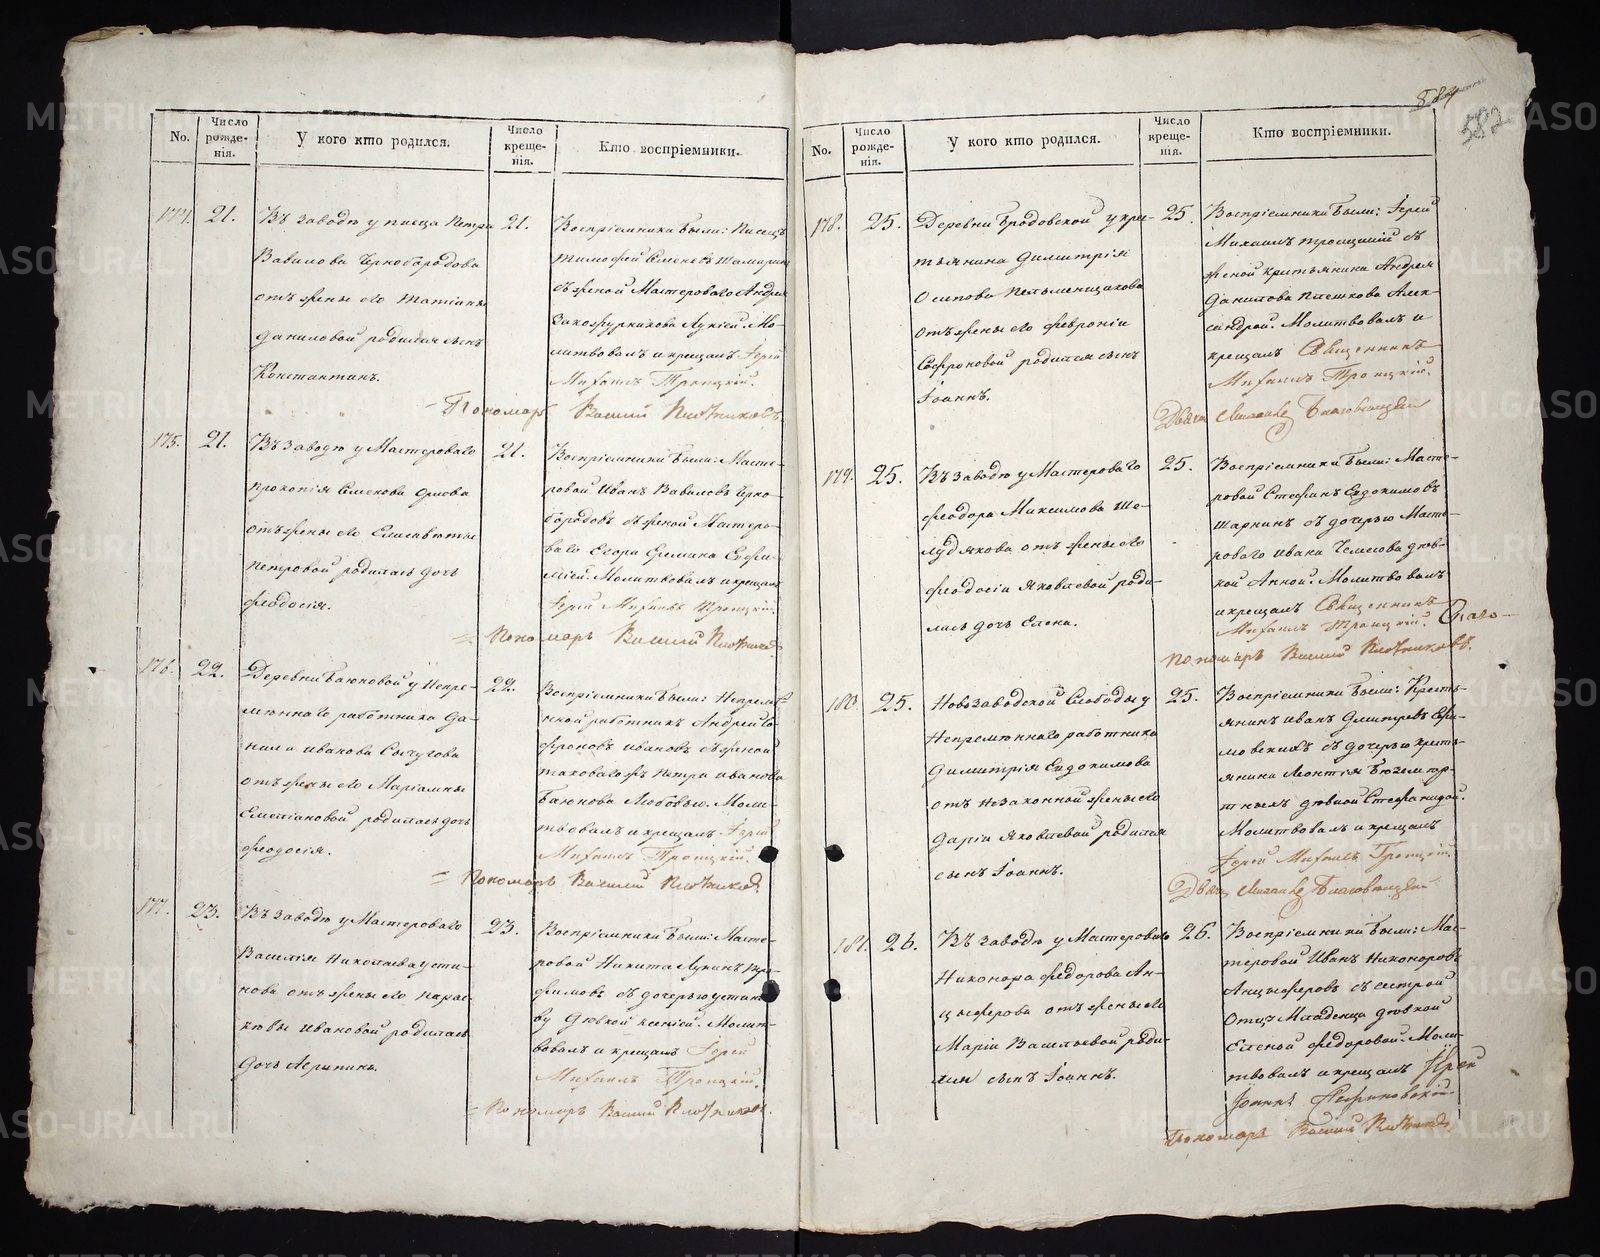 No.
Число рожде-нія.
У кого кто родился.
Число креще-нія.
Кто воспріемники.
174.
21.
Въ заводѣ у писца Петра
Вавилова Чернобородова
отъ жены его Татіаны
Даниловой родился сынъ
Константинъ.
21.
Воспріемники были: Писецъ
Тимофей Семеновъ
съ женой Мастероваго Андрея
Лукіей. Мо-
литвовалъ и крещалъ Іерей
Михаилъ Троицкій.
Пономарь Василій Плотниковъ.
175.
21.
Въ заводѣ у Мастероваго
Прокопія Семенова
отъ жены его Елисаветы
Петровой родилась дочь
Феодосія.
21.
Воспріемники были: Масте-
ровой Иванъ Вавиловъ Черно-
бородовъ съ женой Мастеро-
ваго Егора Евфи-
міей. Молитвовалъ и крещалъ
Іерей Михаилъ Троицкій.
Пономарь Василій Плотниковъ
176.
22.
Деревни Баюновой у Непре-
мѣннаго работника Да-
нила Иванова Сычугова
отъ жены его Маріамны
Емеліановой родилась дочь
Феодосія.
22.
Воспріемники были: Непремѣн-
ной работникъ Андрей Со-
фроновъ Ивановъ съ женой
таковагожъ Петра Иванова
Баюнова Любовью. Моли-
твовалъ и крещалъ Іерей
Михаилъ Троицкій.
Пономарь Василій Плотниковъ.
177.
23.
Въ заводѣ у Мастероваго
Василія Николаева Усти-
нова отъ жены его Парас-
ковьи Ивановой родилась
дочь Агрыпина.
23.
Воспріемники были: Масте-
ровой Никита Лукинъ
съ дочерью Устин-
ву дѣвкой Ксеніей. Молит-
вовалъ и крещалъ Іерей
Михаилъ Троицкій.
Пономарь Василій Плотниковъ.
582
No.
Число рожде-нія.
У кого кто родился.
Число креще-нія.
Кто воспріемники.
178.
25.
Деревни Бродовской у кре-
стьянина Димитрія
Осипова Пельменщикова
отъ жены его Февроніи
Софроновой родился сынъ
Іоаннъ.
25.
Воспріемники были: Іерей
Михаилъ Троицкій съ
женой крестьянина Андрея
Данилова Плешкова Алек-
сандрой. Молитвовалъ и
крещалъ Священникъ
Михаилъ Троицкій.
179.
25.
Въ заводѣ у Мастероваго
Феодора Максимова Ше-
лудякова отъ жены его
Феодосіи Яковлевой роди-
лась дочь Елена.
25.
Воспріемники были: Масте-
ровой Стефанъ Евдокимовъ
Шарнинъ съ дочерью Масте-
роваго Ивана Чемесова дѣв-
кой Анной. Молитвовалъ
и крещалъ Священникъ
Михаилъ Троицкій.
Пономарь Василій Плотниковъ.
180.
25.
Новозаводской Слободы у
Непремѣннаго работника
Димитрія Евдокимова
отъ незаконной жены его
Даріи Яковлевой родился
сынъ Іоаннъ.
25.
Воспріемники были: Кресть-
янинъ Иванъ Дмитревъ Ефи-
мовскихъ съ дочерью кресть-
янина Леонтія
дѣвкой Стефанидой.
Молитвовалъ и крещалъ
Іерей Михаилъ Троицкій
181.
26.
Въ заводѣ у Мастероваго
Никонора Федорова Ан-
цыферова отъ жены его
Маріи Васильевой роди-
лся сынъ Іоаннъ.
26.
Воспріемники были: Мас-
теровой Иванъ Никоноровъ
Анцыферовъ съ сестрой
Отца Младенца дѣвкой
Еленой Федоровой. Моли-
твовалъ и крещалъ Іерей
Іоаннъ
Пономарь Василій Плотниковъ
METRIKI.GASO-URAL.RU